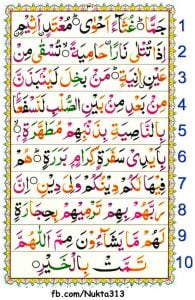 جَمًّا ۝ غُثَآءً اَحْوٰى ۝ مُعْتَدٍ اَثِيْمٍ 1
اِذَا تُتْلٰى حَامِيَةً ۝ تُسْقٰى مِنْ 2
عَيْنٍ اٰنِيَةٍ ۝ مَنْۢ بَخِلَ لَيُنْۢبَذَنَّ 3
مِنْۢ بَعْدِ مِنْۢ بَيْنِ الصُّلْبِ لَنَسْفَعًۢا 4
بِالنَّاصِيَةِ بِذَنْۢبِهِمْ مُطَهَّرَةٍۭ ۝ 5
بِاَيْدِيْ سَفَرَةٍ كِرَامٍۭ بَرَرَةٍ ۝ هُمْ 6
فِيْهَا لَكُمْ دِيْنُكُمْ وَلِيَ دِيْنِ ۝ اِنَّ 7
رَبَّهُمْ بِهِمْ تَرْمِيْهِمْ بِحِجَارَةٍ 8
لَهُمْ مَّا يَشَآءُوْنَ مِنَ اللّٰهُمَّ 9
تَمَّتْ بِالْخَيْرِ 10
fb.com/Nukta313